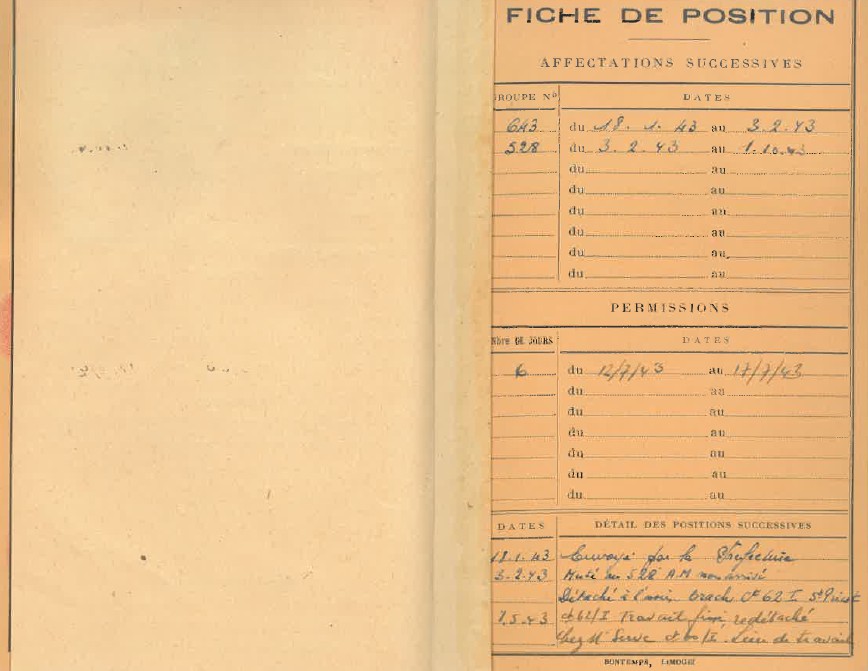 FICHE DE POSITION
AFFECTATIONS SUCCESSIVES
ROUPE Nº DATES
643 du 18. 1. 43 au 3.2.43
528 du 3. 2. 43 au 1.10.43
du au
du au
du au
du au
du au
du au
PERMISSIONS
Nbre DE JOURS DATES
6 du 12/7/43 au 17/7/43
du au
du au
du au
du au
du au
du au
DATES DÉTAIL DES POSITIONS SUCCESSIVES
18.1.43 Envoyé par la Préfecture
3-2-43 Muté au 528 A.M non arrivé
Détaché à 62 I St
7.5.43 62/I Travail fini, redétaché
chez Mr Lieu de travail
BONTEMPS, LIMOGES